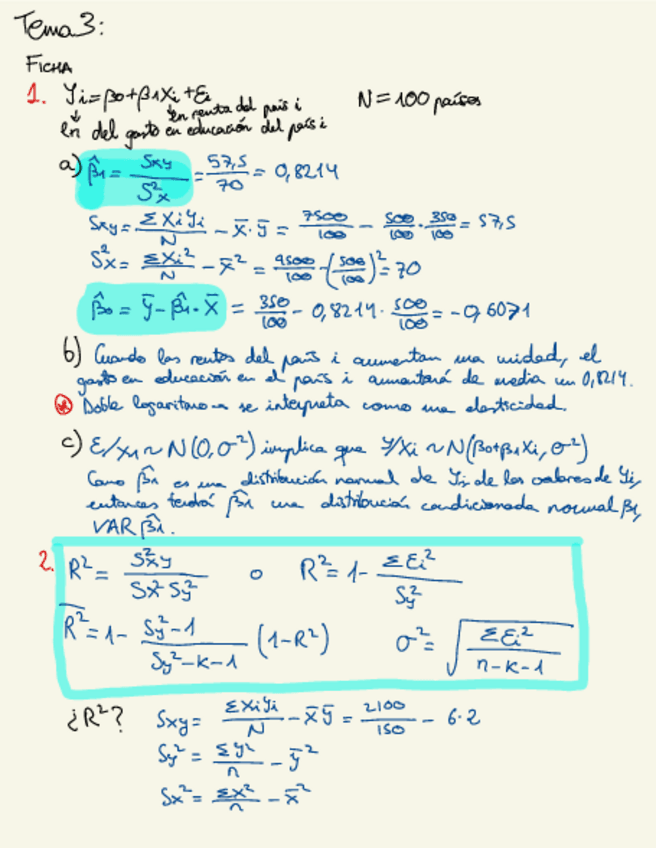 Tema 3:
FICHA
1. Yi = β0 + β1Xi + Ei N = 100 países
ln renta del país i
ln del gasto en educación del país i
a) β̂1 = Sxy / S²x = 57,5 / 70 = 0,8214
Sxy = ΣXiYi / N - x̄·ȳ = 7500/100 - 500/100 · 350/100 = 57,5
S²x = ΣXi² / N - x̄² = 9500/100 - (500/100)² = 70
β̂0 = ȳ - β̂1·x̄ = 350/100 - 0,8214 · 500/100 = -0,6071
b) Cuando las rentas del país i aumentan una unidad, el
gasto en educación en el país i aumentará de media un 0,8214.
Doble logaritmo → se interpreta como una elasticidad.
c) E/x1 ~ N(0,σ²) implica que Y/Xi ~ N(β0+β1Xi, σ²)
Como β̂1 es una distribución normal de Yi, de los valores de Yi,
entonces tendrá β̂1 una distribución condicionada normal β1,
VAR β̂1.
2. R² = S²xy / Sx² Sy² o R² = 1 - ΣEi² / Sy²
R̄² = 1 - Sy²-1 / Sy²-k-1 (1-R²) σ² = √(ΣEi² / n-k-1)
¿R²? Sxy = ΣXiYi / N - x̄ȳ = 2100/150 - 6·2
Sy² = Σy² / n - ȳ²
Sx² = Σx² / n - x̄²